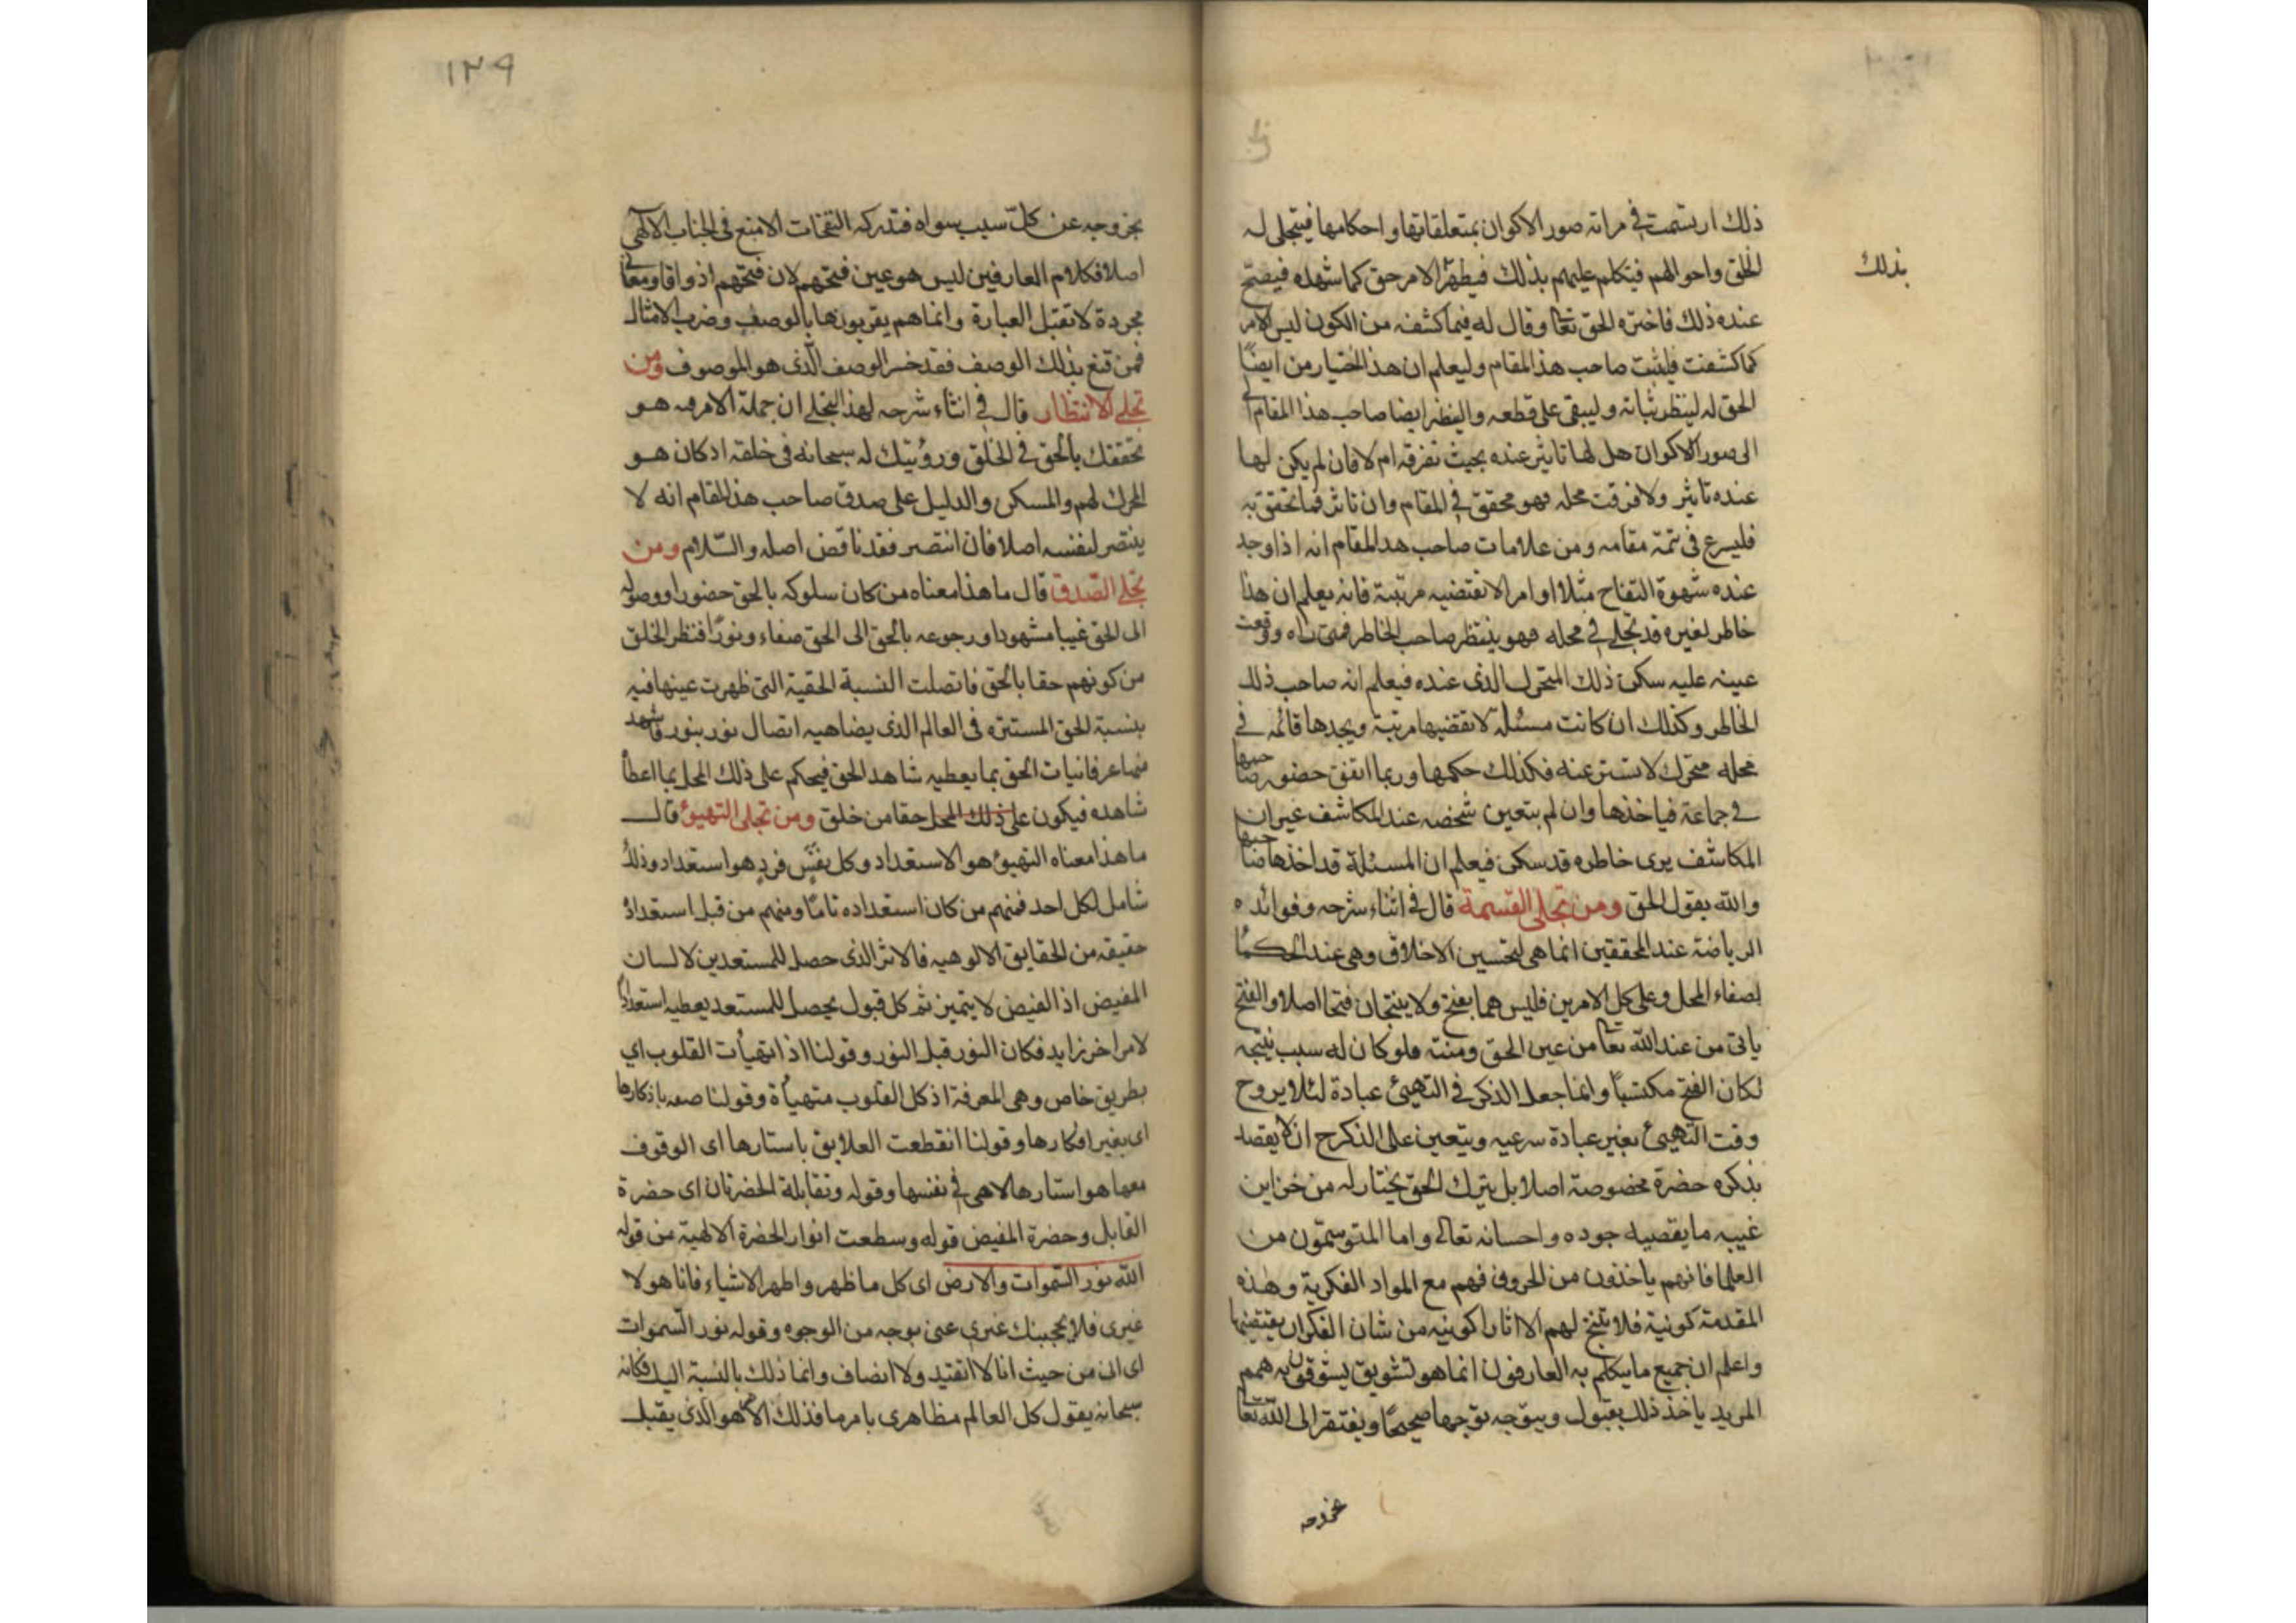 ذلك ارتسمت في مراته صور الاكوان بمتعلقاتها واحكامها فيتجلى له
الخلق واحوالهم فيتكلم عليهم بذلك فيظهر الامر حق كما شهده فيصح
بذلك
عنده ذلك فاختبره الحق تعا وقال له فيما كشفه من الكون ليس الامر
كما كشفت فليثبت صاحب هذا المقام وليعلم ان هذا اختيار من ايضًا
الحق له لينظر ثباته وليبقى على قطعه والينظر ايضا صاحب هذا المقام
الى صور الاكوان هل لها تاثير عنده بحيث تفرقه ام لا فان لم يكن لها
عنده تاثير ولا فرقت محله فهو محقق في المقام وان تاثر فما تحقق به
فليسرع في تتمة مقامه ومن علامات صاحب هذا المقام انه اذا وجد
عنده شهوة التفاح مثلا او امر لا تقتضيه مرتبته فانه يعلم ان هذا
خاطر لغيره قد تجلى في محله فهو ينتظر صاحب الخاطر فمتى راه ووقعت
عينه عليه سكن ذلك المتحرك الذى عنده فيعلم انه صاحب ذلك
الخاطر وكذلك ان كانت مسئلة لا تقتضيها مرتبته ويجدها قائمه في
محله متحرك لا تستتر عنه فكذلك حكمها وربما اتفق حضور صاحبها
في جماعة فياخذها وان لم يتعين شخصه عند المكاشف غير ان
المكاشف يرى خاطره قد سكن فيعلم ان المسئلة قد اخذها صاحبها
والله يقول الحق ومن تجلى القسمة قال في اثناء شرحه وفوائده
الرياضة عند المحققين انما هى لتحسين الاخلاق وهى عند الحكما
لصفاء المحل وعلى كل الامرين فليس هما بفتح ولا ينتجان فتحا اصلا والفتح
ياتى من عند الله تعا من عين الحق ومنته فلو كان له سبب ينتجه
لكان الفتح مكتسبًا وانما جعل الذكر في التهيئ عبادة لئلا يروح
وقت التهيئ بغير عبادة شرعيه ويتعين على الذكرح ان لا يقصد
بذكره حضرة مخصوصة اصلا بل يترك الحق يختار له من خزاين
غيبه ما يقضيه جوده واحسانه تعالى واما المتوسمون من
العلما فانهم ياخذون من الحروف فهم مع المواد الفكرية وهذه
المقدمة كونية فلا تنتج لهم الا اثارا كونيه من شان الفكر ان يقتضيها
واعلم ان جميع ما يتكلم به العارفون انما هو تشويق يشوقون به همم
المريد ياخذ ذلك بقبول ويتوجه توجها صحيحًا ويفتقر الى الله تعا
بخروجه
١٢٩
بخروجه عن كلّ سبب سواه فتدركه النفحات الامنع في الجناب الالهى
اصلا فكلام العارفين ليس هو عين فتحهم لان فتحهم اذواقا ومعانى
مجردة لا تقبل العبارة وانما هم يقربونها بالوصف وضرب الامثال
فمن قنع بذلك الوصف فقد خسر الوصف الّذى هو الموصوف ومن
تجلى الانتظار قال في اثناء شرحه لهذا التجلى ان جملة الامر فيه هو
تحققك بالحق في الخلق ورؤيتك له سبحانه في خلقه اذ كان هو
المحرك لهم والمسكن والدليل على صدق صاحب هذا المقام انه لا
ينتصر لنفسه اصلا فان انتصر فقد ناقض اصله والسّلام ومن
تجلى الصّدق قال ما هذا معناه من كان سلوكه بالحق حضورا ووصوله
الى الحق غيبا مشهودا ورجوعه بالحق الى الحق صفاء ونورًا فنظر الخلق
من كونهم حقا بالحق فاتصلت النسبة الحقية التى ظهرت عينها فيه
بنسبة الحق المستتره في العالم الذى يضاهيه اتصال نور بنور فاشهد
منها عرفانيات الحق بما يعطيه شاهد الحق فيحكم على ذلك المحل بما اعطا
شاهده فيكون على ذلك المحل حقا من خلق ومن تجلى التهيؤ قال
ما هذا معناه التهيؤ هو الاستعداد وكل نفَسٍ فردٍ هو استعداد وذلك
شامل لكل احد فمنهم من كان استعداده تامًا ومنهم من قبل استعداد
حقيقه من الحقايق الالوهيه فالاثر الذى حصل للمستعدين لا لسان
المفيض اذ الفيض لا يتميز ثم كل قبول يحصل للمستعد يعطيه استعدادًا
لامر اخر زايد فكان النور قبل النور وقولنا اذا تهيأت القلوب اي
بطريق خاص وهى المعرفة اذ كل القلوب متهيأة وقولنا صفت باذكارها
اى بغير افكارها وقولنا انقطعت العلايق باستارها اى الوقوف
معها هو استارها لا هى في نفسها وقوله وتقابلة الحضرتان اى حضرة
القابل وحضرة المفيض قوله وسطعت انوار الحضرة الالهية من قوله
الله نور السّموات والارض اى كل ما ظهر واظهر الاشياء فانا هو لا
غيرى فلا يحجبنك غيرى عنى بوجه من الوجوه وقوله نور السّموات
اى انى من حيث انا لا اتقيد ولا انضاف وانما ذلك بالنسبة اليك فكانه
سبحانه يقول كل العالم مظاهرى بامر ما فذلك الامر هو الّذى يقبل